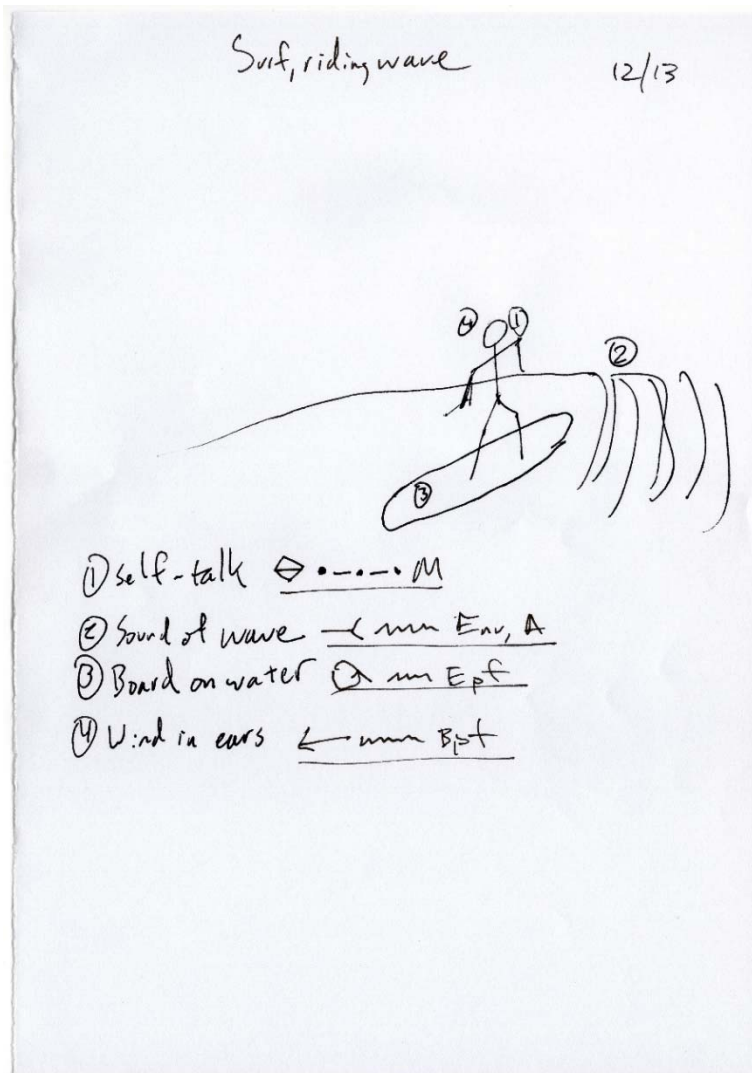 Surf, riding wave
12/13
④ ①
②
③
① self-talk M
② Sound of wave Env, A
③ Board on water Epf
④ Wind in ears Bpf